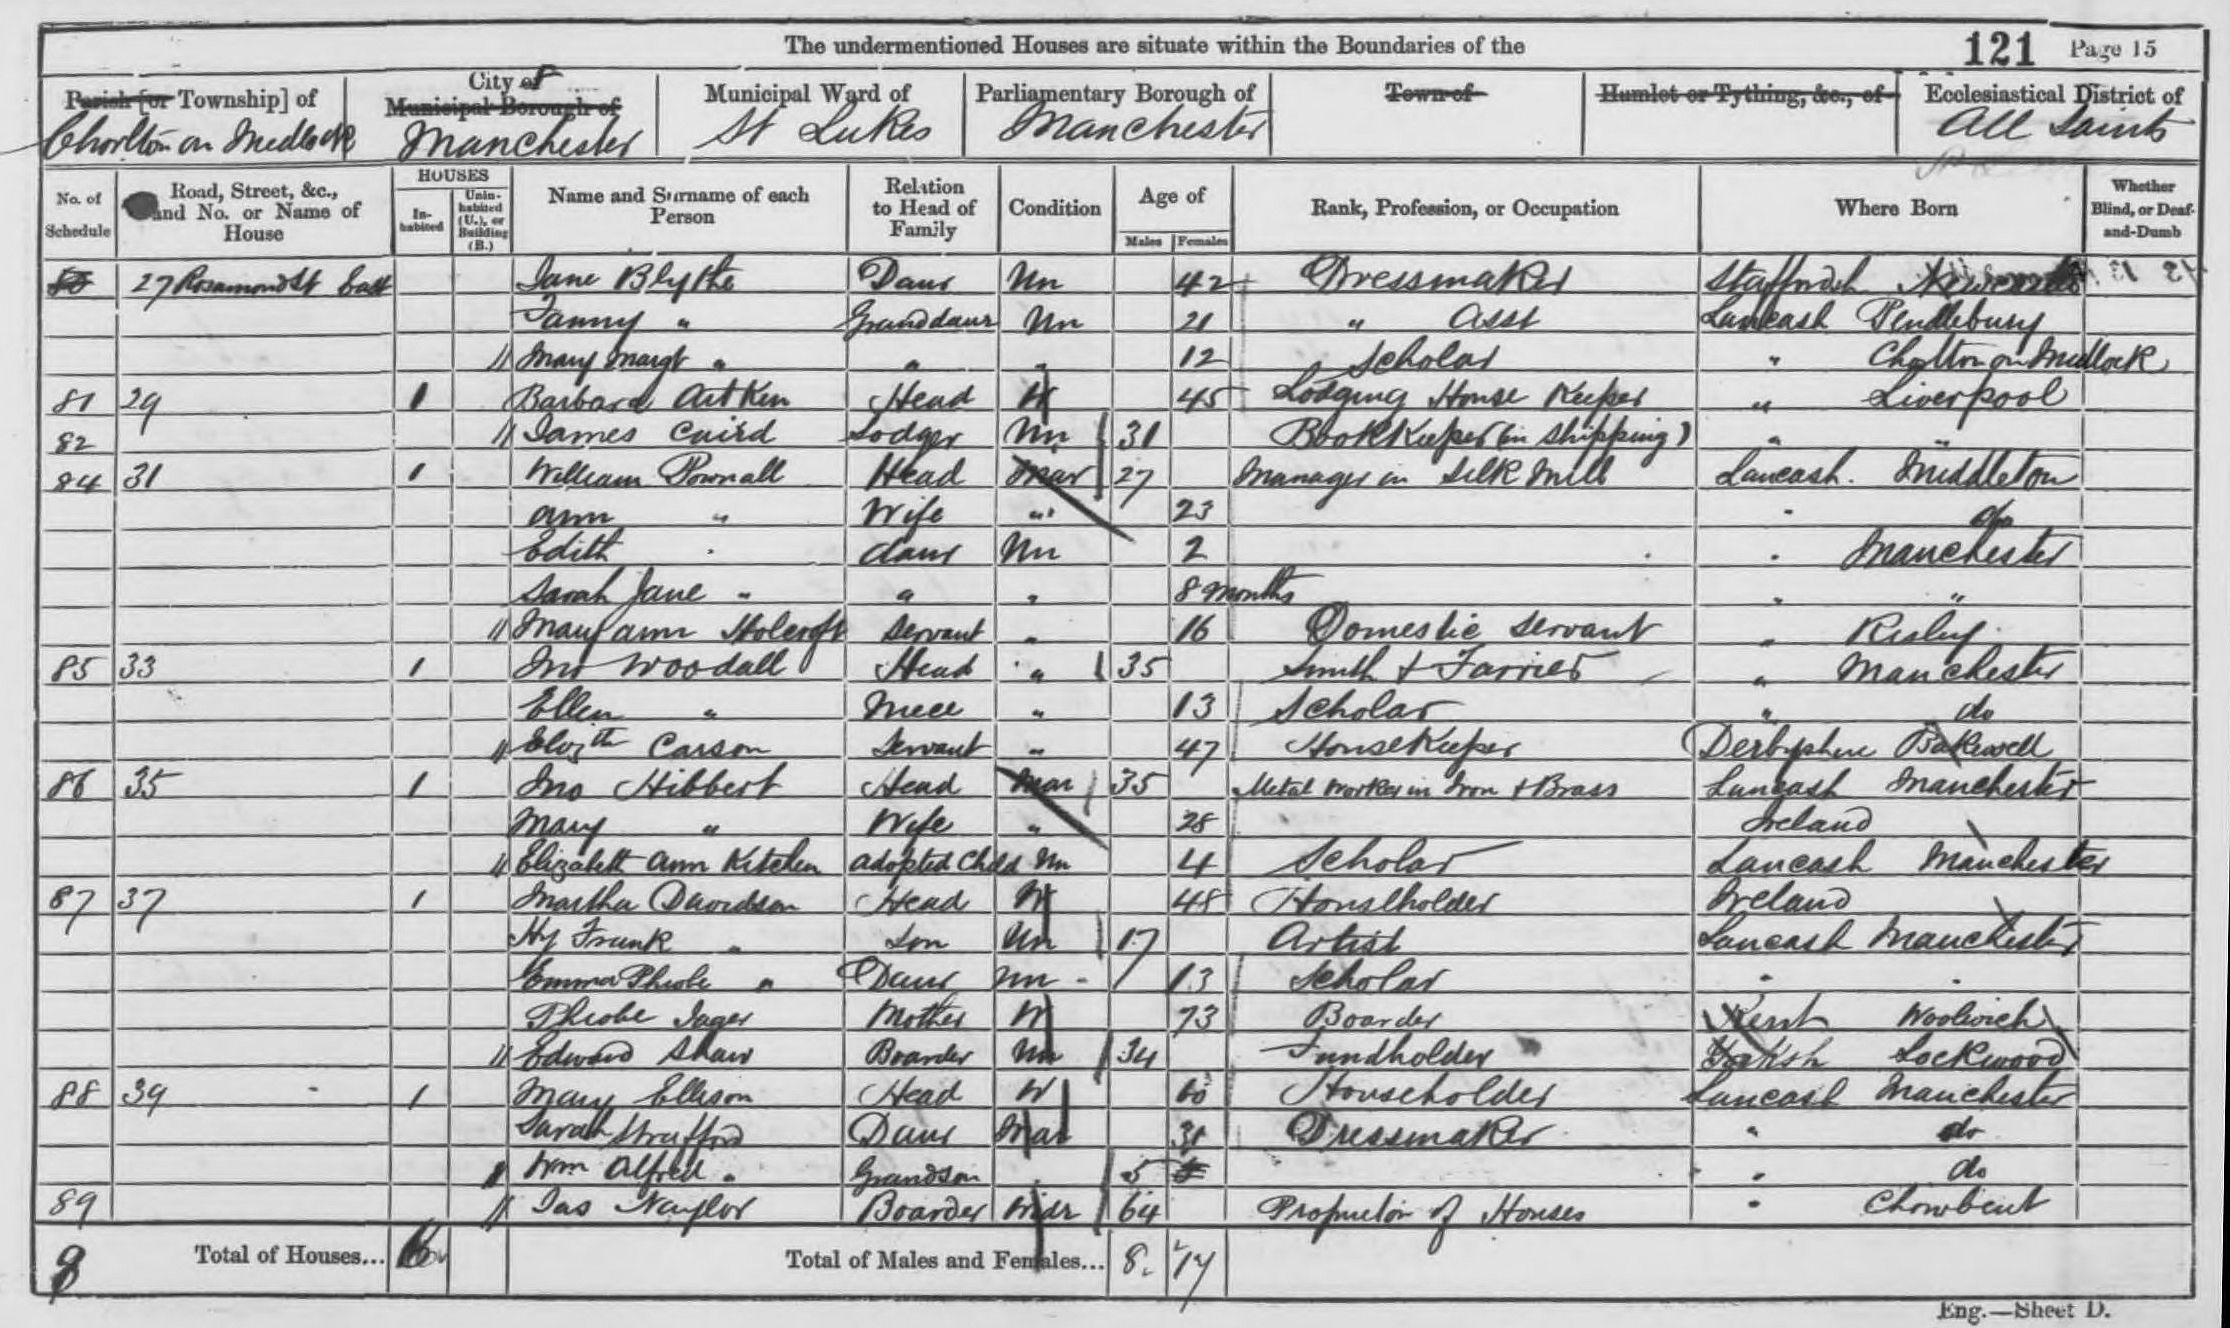 The undermentioned Houses are situate within the Boundaries of the 121 Page 15
Parish [or Township] of City of Municipal Borough of Municipal Ward of Parliamentary Borough of Town of Hamlet or Tything, &c., of Ecclesiastical District of
Chorlton on Medlock Manchester St Lukes Manchester All Saints
No. of Schedule Road, Street, &c., and No. or Name of House HOUSES In-habited Unin-habited (U.), or Building (B.) Name and Surname of each Person Relation to Head of Family Condition Age of Males Females Rank, Profession, or Occupation Where Born Whether Blind, or Deaf-and-Dumb
80 27 Rosamond St East Jane Blythe Daur Un 42 Dressmaker Staffordsh Newcastle
Fanny " Granddaur Un 21 " Asst Lancash Pendlebury
Mary Margt " " " 12 Scholar " Chorlton on Medlock
81 29 1 Barbara Aitken Head W 45 Lodging House Keeper " Liverpool
82 James Caird Lodger Un 31 Bookkeeper (in shipping) " "
84 31 1 William Pownall Head Mar 27 Manager in Silk Mill Lancash. Middleton
Ann " Wife " 23 " do
Edith " daur Un 2 " Manchester
Sarah Jane " " " 8 months " "
Mary Ann Holcroft Servant " 16 Domestic Servant " Risley
85 33 1 Jno Woodall Head " 35 Smith & Farrier " Manchester
Ellen " Niece " 13 Scholar " do
Elizth Carson Servant " 47 Housekeeper Derbyshire Bakewell
86 35 1 Jno Hibbert Head Mar 35 Metal Worker in Iron & Brass Lancash Manchester
Mary " Wife " 28 Ireland
Elizabeth Ann Kitchen adopted Child Un 4 Scholar Lancash Manchester
87 37 1 Martha Davidson Head W 48 Householder Ireland
Hy Frank " Son Un 17 Artist Lancash Manchester
Emma Phebe " Daur Un 13 Scholar " "
Phebe Jager Mother W 73 Boarder Kent Woolwich
Edward Shaw Boarder Un 34 Fundholder Yorksh Lockwood
88 39 1 Mary Ellison Head W 60 Householder Lancash Manchester
Sarah Strafford Daur Mar 31 Dressmaker " do
Wm Alfred " Grandson " 5 " do
89 Jas Naylor Boarder Widr 64 Proprietor of Houses " Chowbent
Total of Houses... 6 Total of Males and Females... 8 17
Eng.—Sheet D.